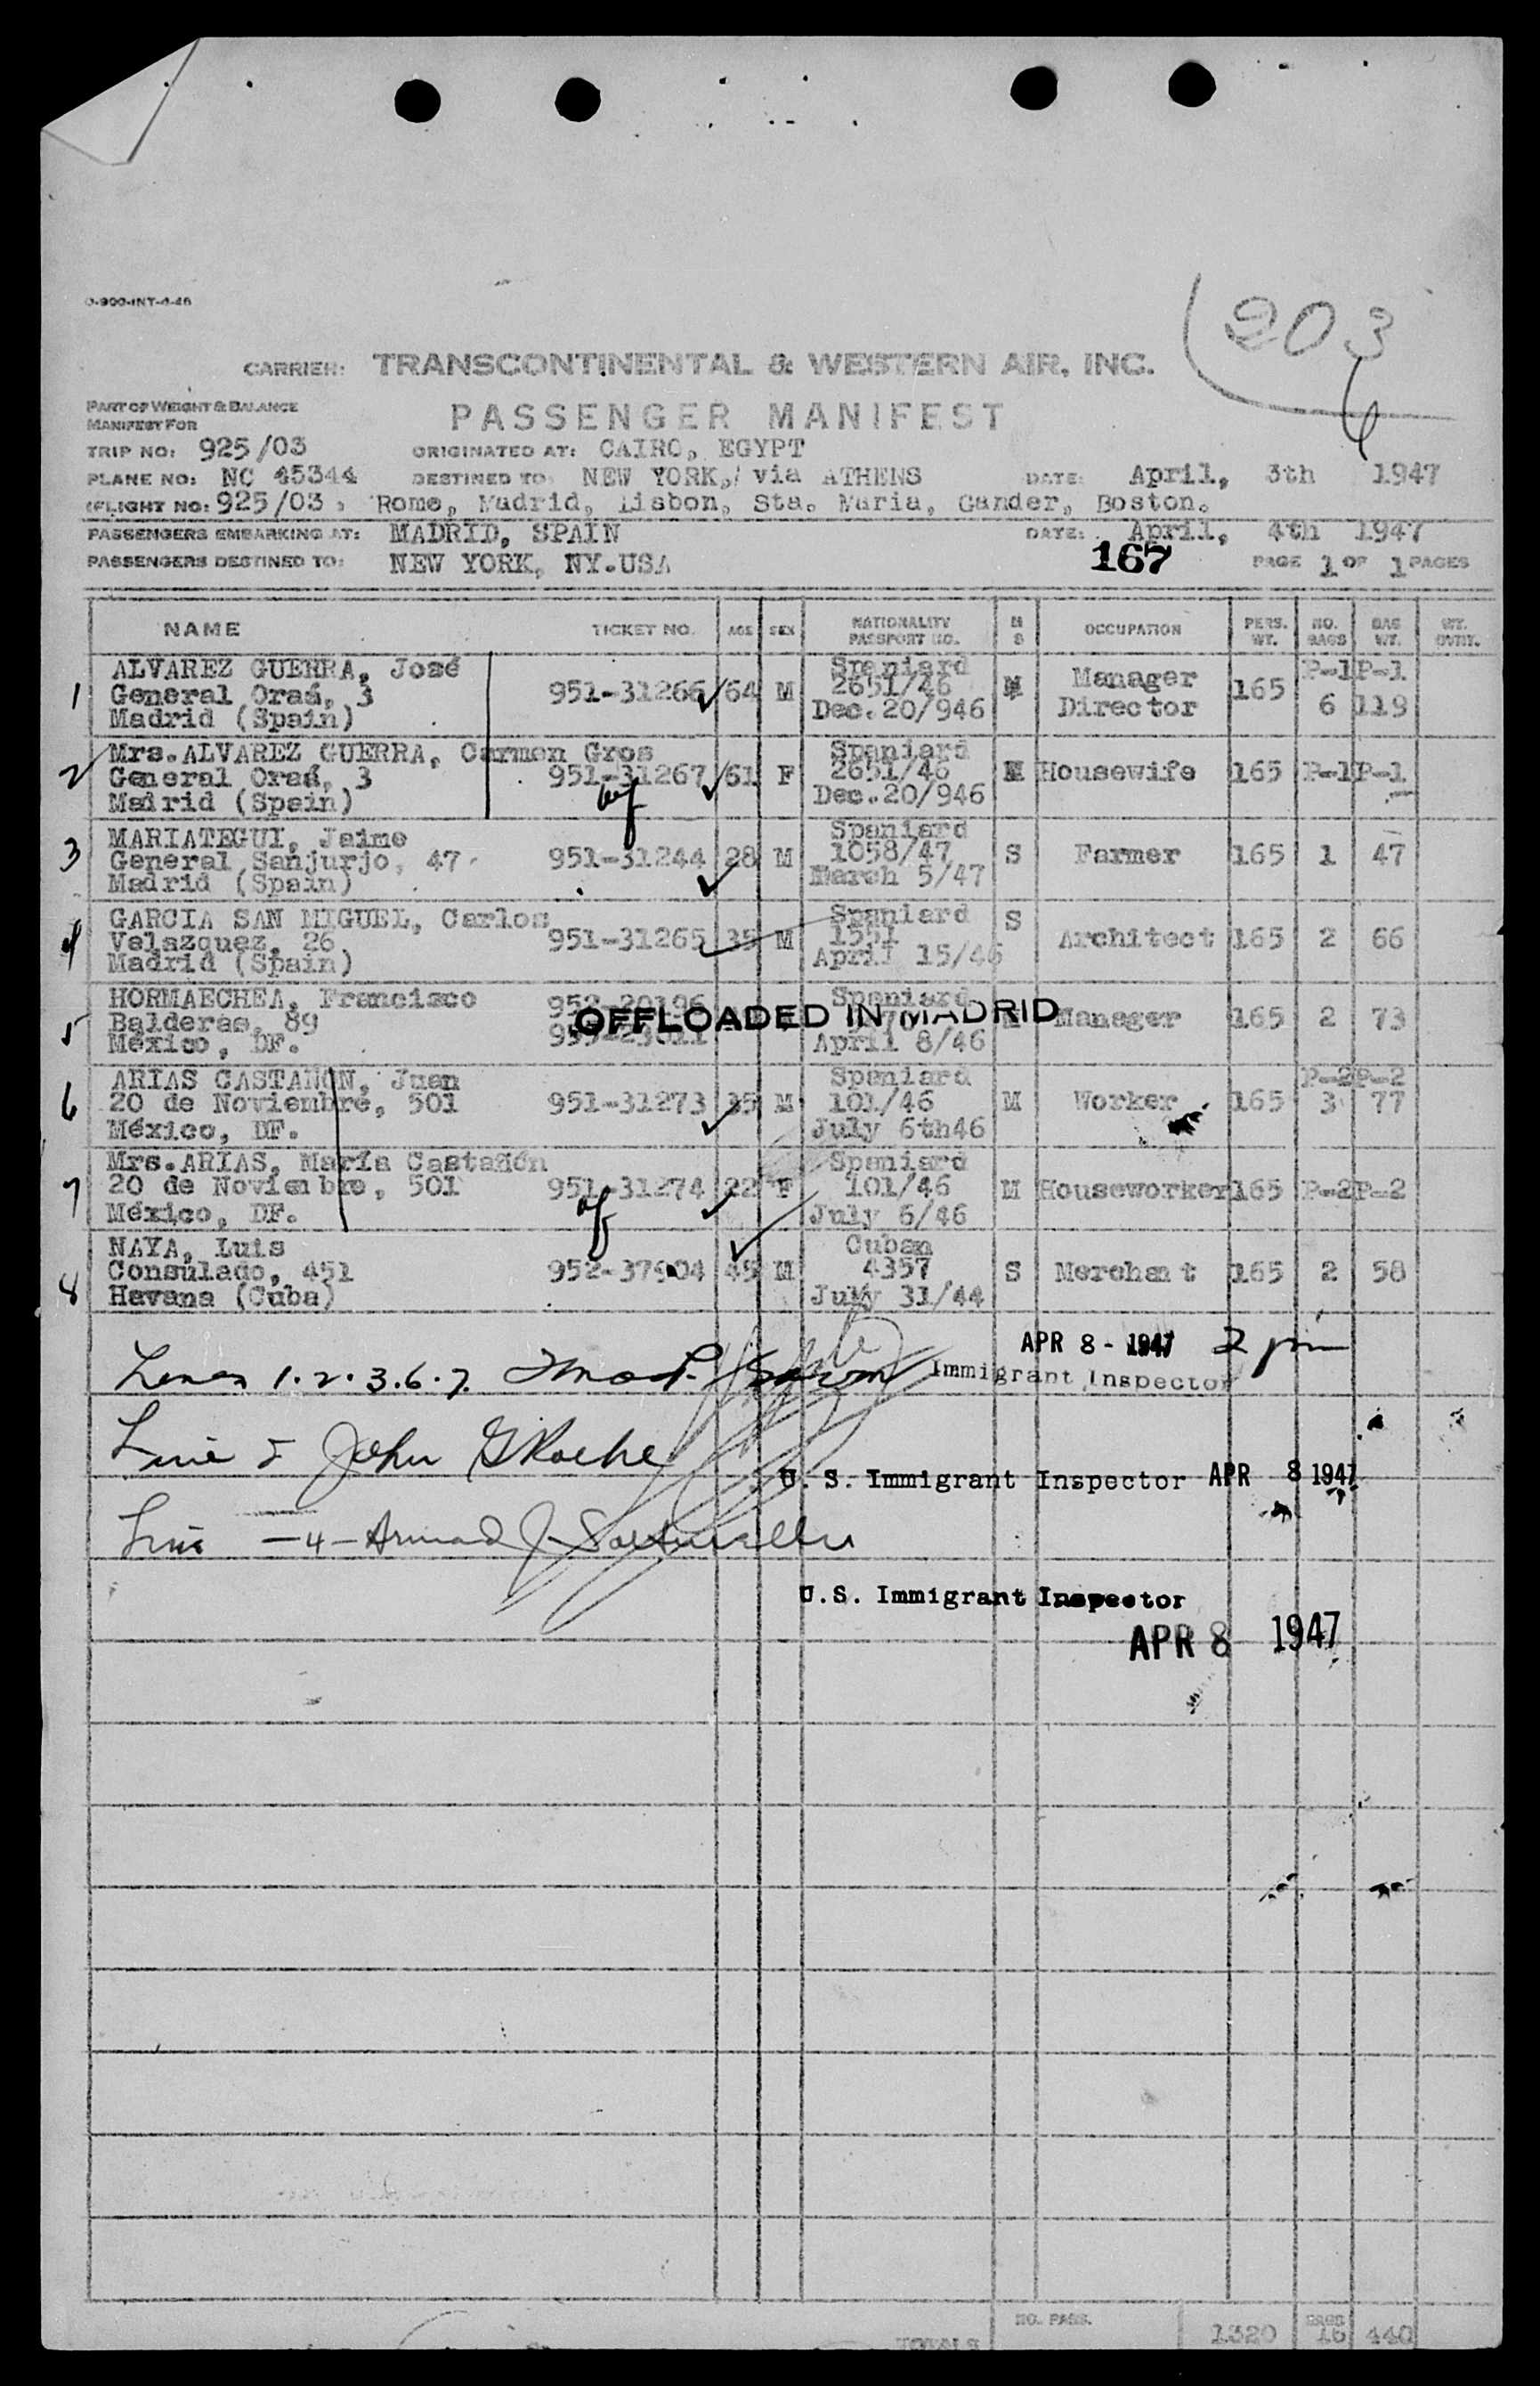 0-900-INT-4-46
203
CARRIER: TRANSCONTINENTAL & WESTERN AIR, INC.
PART OF WEIGHT & BALANCE
MANIFEST FOR
PASSENGER MANIFEST
TRIP NO: 925/03 ORIGINATED AT: CAIRO, EGYPT
PLANE NO: NC 45344 DESTINED TO: NEW YORK, via ATHENS DATE: April, 3th 1947
FLIGHT NO: 925/03, Rome, Madrid, Lisbon, Sta. Maria, Gander, Boston.
PASSENGERS EMBARKING AT: MADRID, SPAIN DATE: April, 4th 1947
167
PASSENGERS DESTINED TO: NEW YORK, NY.USA PAGE 1 OF 1 PAGES
NAME TICKET NO. AGE SEX NATIONALITY PASSPORT NO. M S OCCUPATION PERS. WT. NO. BAGS BAG WT. WT. OVRT.
ALVAREZ GUERRA, José Spaniard P-1 P-1
1 General Oraá, 3 951-31266 64 M 2651/46 M Manager 165
Madrid (Spain) Dec.20/946 Director 6 119
Mrs.ALVAREZ GUERRA, Carmen Gros Spaniard
2 General Oraá, 3 951-31267 61 F 2651/46 M Housewife 165 P-1 P-1
Madrid (Spain) Dec.20/946
MARIATEGUI, Jaime Spaniard
3 General Sanjurjo, 47 951-31244 28 M 1058/47 S Farmer 165 1 47
Madrid (Spain) March 5/47
GARCIA SAN MIGUEL, Carlos Spaniard S
4 Velazquez, 26 951-31265 35 M 1551 Architect 165 2 66
Madrid (Spain) April 15/46
HORMAECHEA, Francisco 952-20196 Spaniard
5 Balderas, 89 OFFLOADED IN MADRID Manager 165 2 73
México, DF. April 8/46
ARIAS CASTAÑON, Juan Spaniard P-2 P-2
6 20 de Noviembre, 501 951-31273 35 M 101/46 M Worker 165 3 77
México, DF. July 6th46
Mrs.ARIAS, María Castañón Spaniard
7 20 de Noviembre, 501 951-31274 22 F 101/46 M Houseworker 165 P-2 P-2
México, DF. July 6/46
NAYA, Luis Cuban
8 Consulado, 451 952-37904 45 M 4357 S Merchant 165 2 58
Havana (Cuba) July 31/44
APR 8 - 1947 2 pm
Lines 1.2.3.6.7. Immigrant Inspector
Line 5 John G Roche
U. S. Immigrant Inspector APR 8 1947
Line -4- Armand J.
U.S. Immigrant Inspector
APR 8 1947
TOTALS NO. PASS. 1320 BAGS 16 440